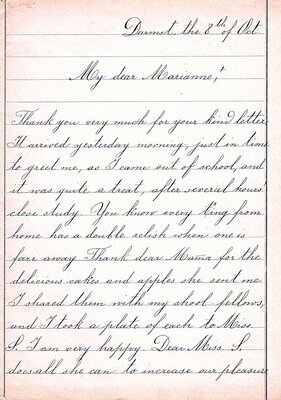 Darmst. the 8th of Oct.
My dear Marianne,
Thank you very much for your kind letter
It arrived yesterday morning, just in time
to greet me, as I came out of school, and
it was quite a treat, after several hours
close study. You know every ting from
home has a double relish when one is
fare away Thank dear Mama for the
delicious cakes and apples she sent me
I shared them with my shool fellows,
and I took a plate of each to Miss.
S. I am very happy. Dear Miss. S.
does all she can to increase our pleasure